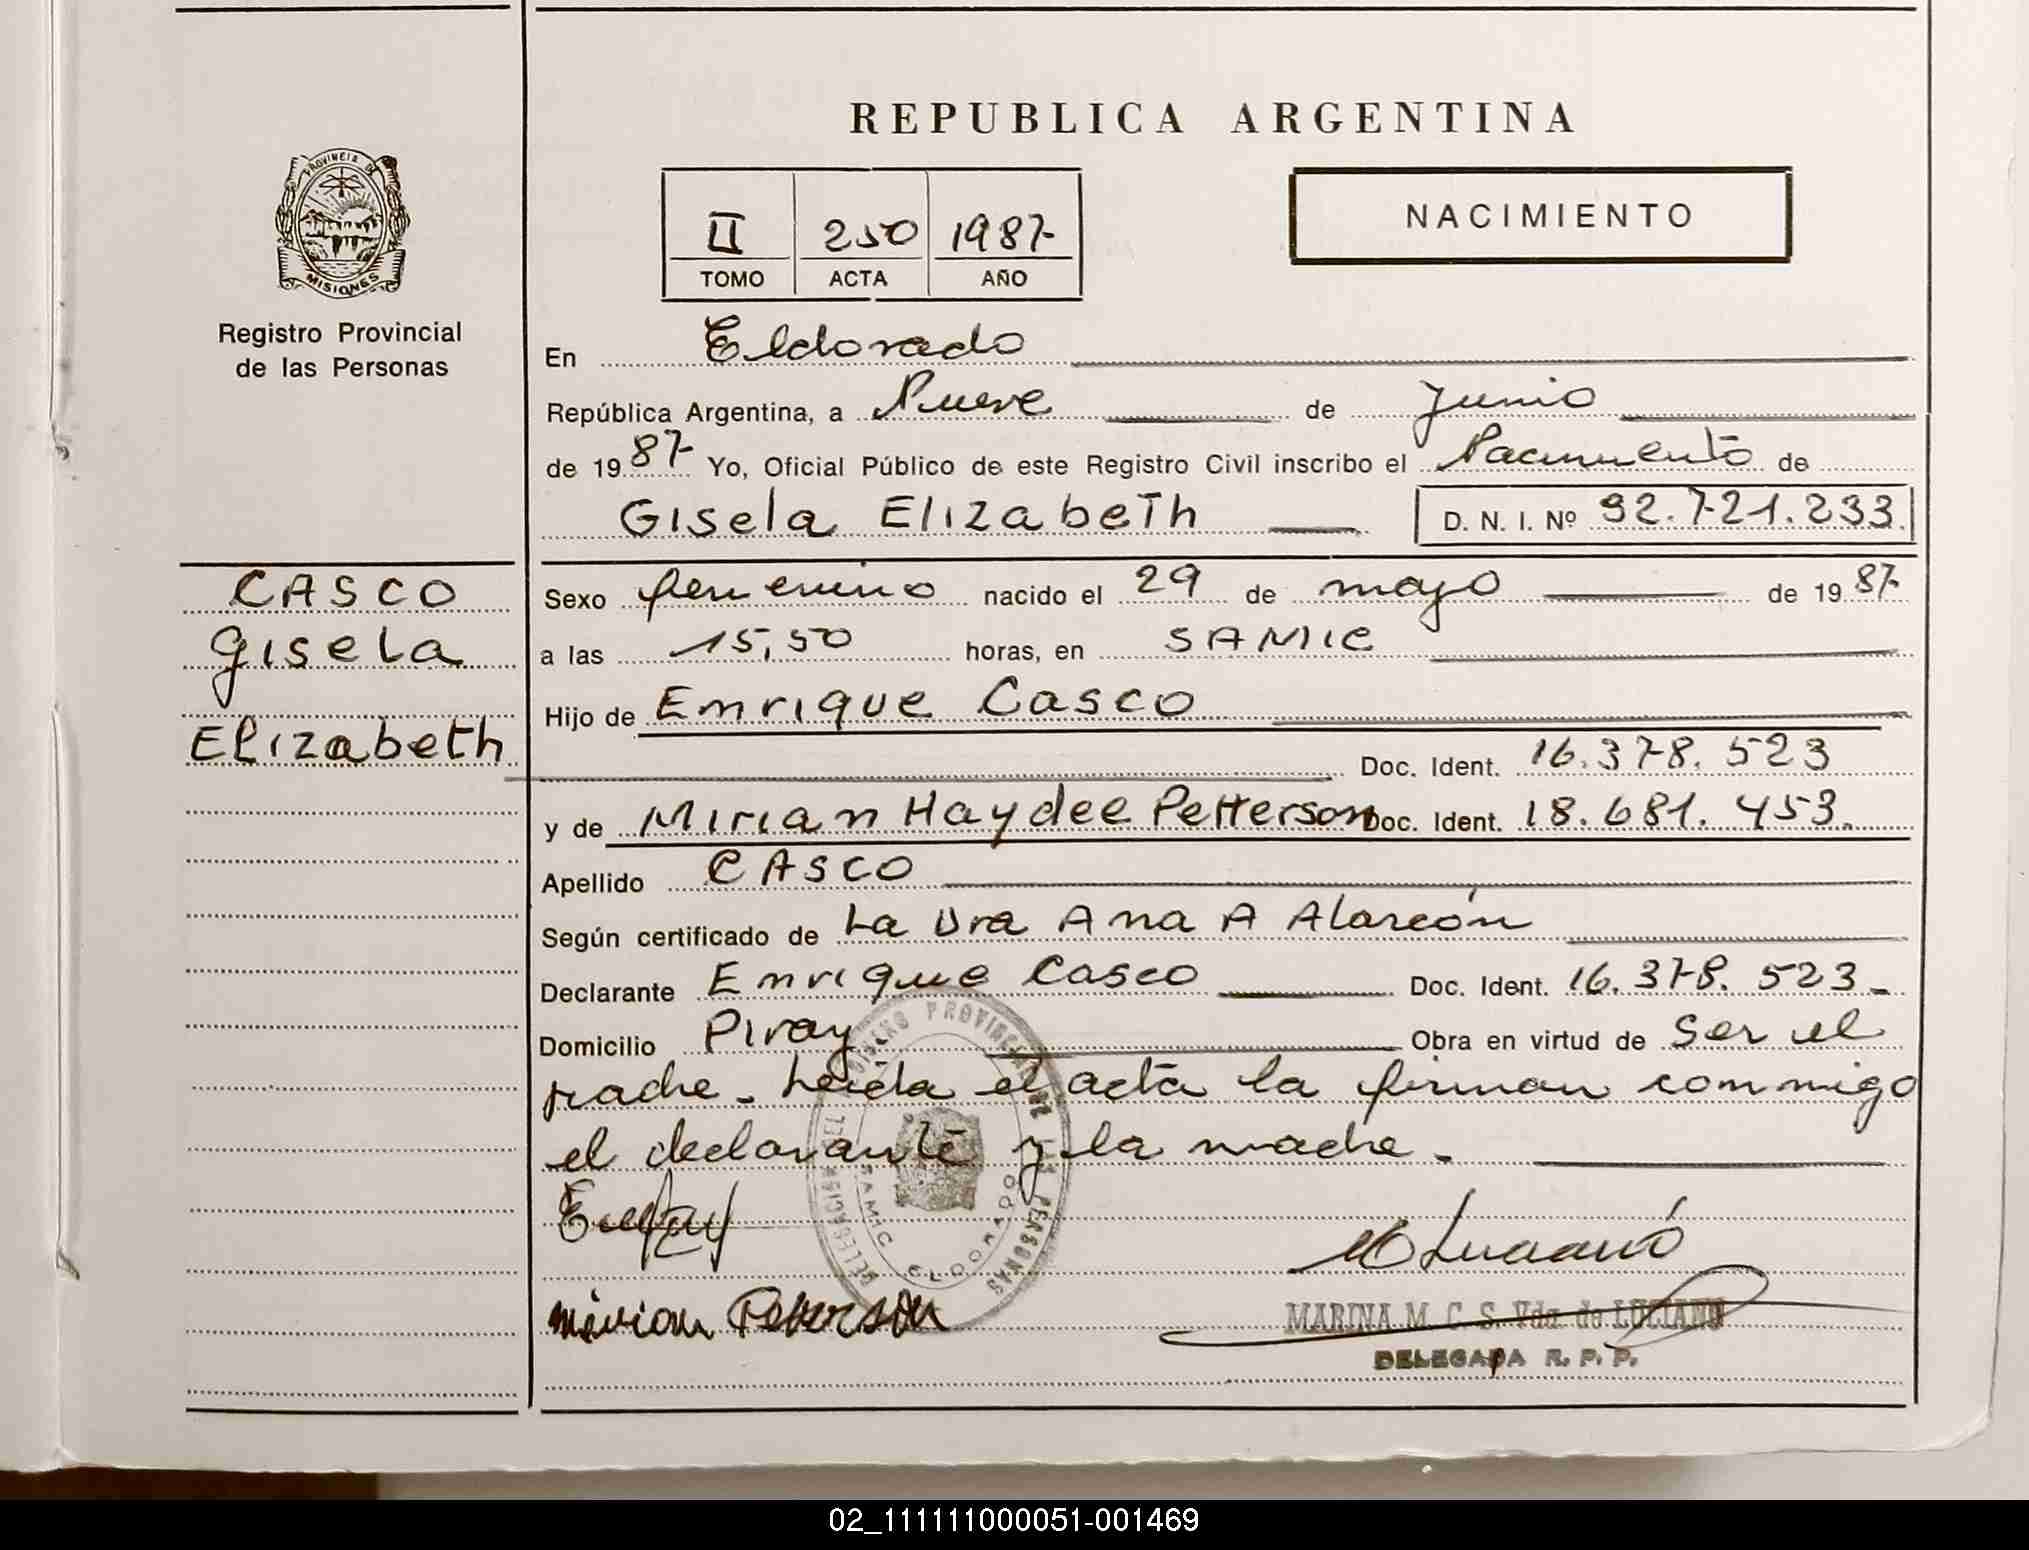 REPUBLICA ARGENTINA
PROVINCIA DE
MISIONES
Registro Provincial
de las Personas
II 250 1987
TOMO ACTA AÑO
NACIMIENTO
En Eldorado
República Argentina, a Nueve de Junio
de 1987 Yo, Oficial Público de este Registro Civil inscribo el Nacimiento de
Gisela Elizabeth D. N. I. Nº 92.721.233.
CASCO
Gisela
Elizabeth
Sexo femenino nacido el 29 de mayo de 1987
a las 15,50 horas, en SAMIC
Hijo de Enrique Casco
Doc. Ident. 16.378.523
y de Mirian Haydee Petterson Doc. Ident. 18.681.453.
Apellido CASCO
Según certificado de La Dra Ana A Alarcón
Declarante Enrique Casco Doc. Ident. 16.378.523.
Domicilio Piray Obra en virtud de Ser el
padre. Leida el acta la firman conmigo
el declarante y la madre.
SAMIC ELDORADO
Mirian Peterson
MARINA M. C. S. Vda. de LUCIANO
DELEGADA R. P. P.
02_111111000051-001469